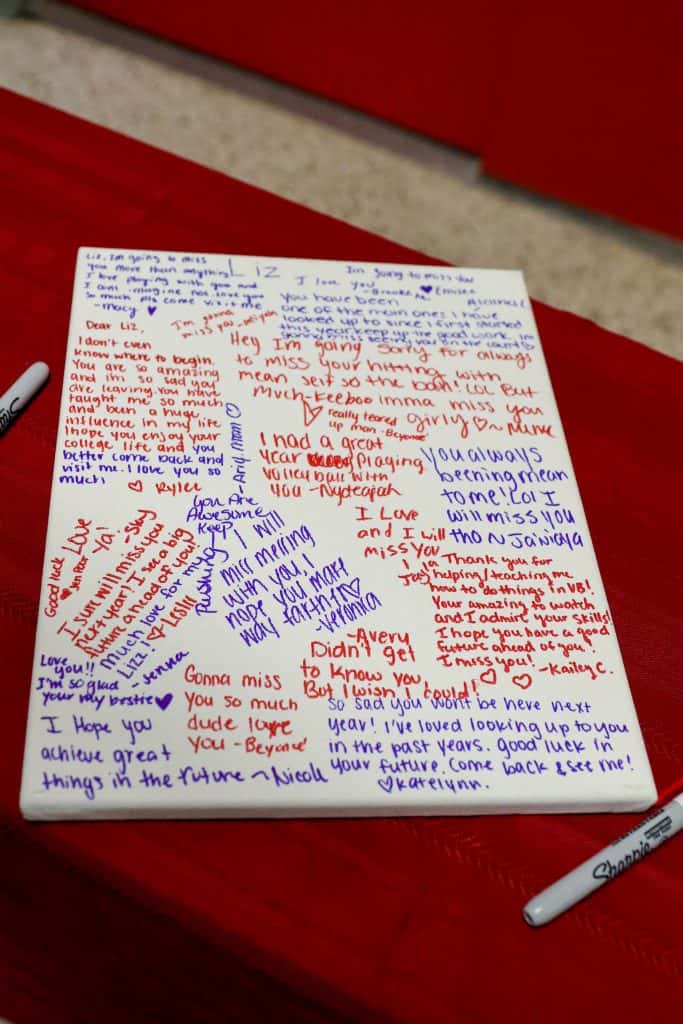 Liz, I'm going to miss
you more than anything
I love playing with you and
so much pls come visit me
-Macy
Liz
I love you
-Brooke
Im going to miss you
You have been
one of the main ones I have
looked up to since I first started
this year keep up the good work, Im
gonna miss seeing you on the court
I'm gonna
miss you
Hey Im going Sorry for always
to miss your hitting with
mean self so the ball! LOL But
much-keeboo imma miss you
girly
really teared
up man -Beyonce'
Dear Liz,
I don't even
know where to begin.
You are so amazing
and im so sad you
are leaving. You have
taught me so much
and been a huge
influence in my life
I hope you enjoy your
college life and you
better come back and
visit me. I love you so
much
Rylee
I had a great
year playing
volleyball with
you -Nydeajah
You always
beening mean
to me! Lol I
will miss you
tho ~ Janiaya
You Are
Awesome
Keep
pushing
I will
miss merring
with you, I
hope you make
way farth
-Veronika
I Love
and I will
miss you
Good luck
Love
Ya!
I sure will miss you -Skay
next year! I see a big
future ahead of you!
-Leslie
Much love for my
Lizz!
-Jenna
Thank you for
helping/teaching me
how to do things in VB!
Your amazing to watch
and I admire your skills!
I hope you have a good
future ahead of you!
I miss you!
-Kailey C.
-Avery
Didn't get
to know you
But I wish I could!
Love
you!!
I'm so glad
your my bestie
Gonna miss
you so much
dude love
you -Beyonce'
I Hope you
achieve great
things in the future ~Nicole
So sad you won't be here next
year! I've loved looking up to you
in the past years. good luck in
your future. Come back & see me!
Katelynn.
Sharpie